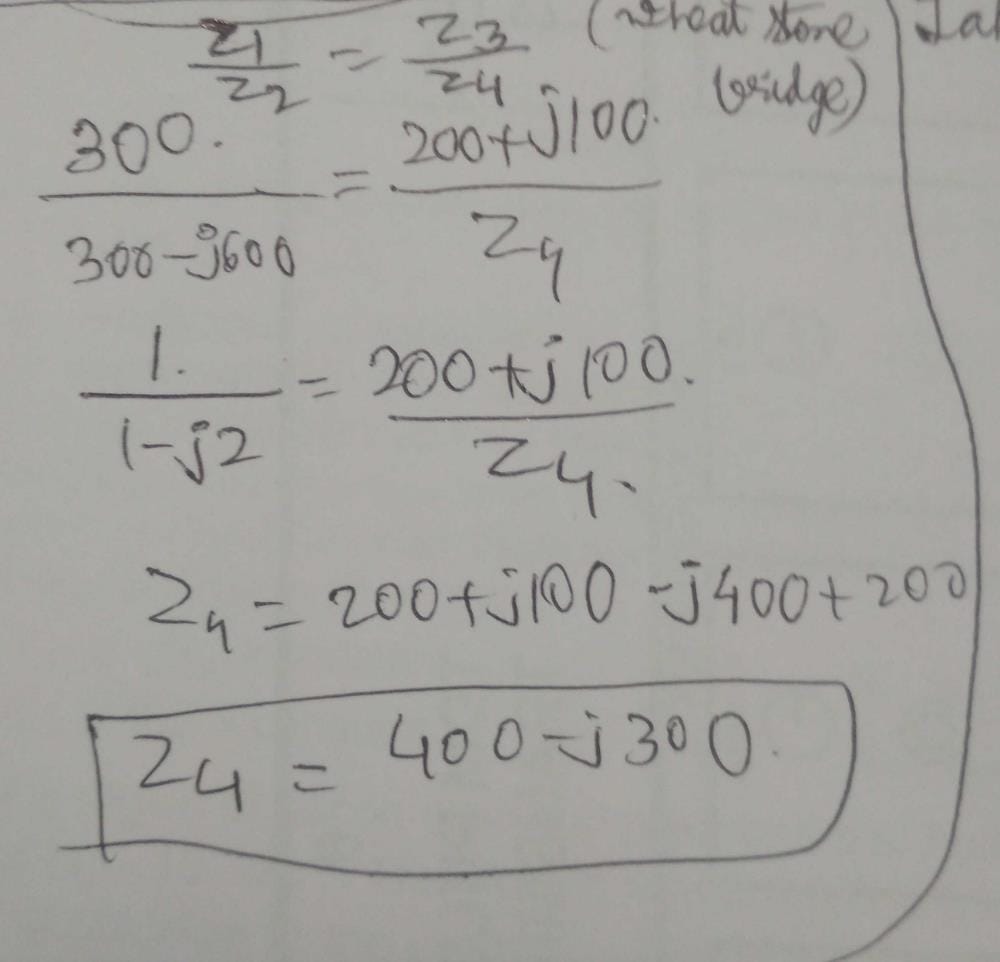 Z1/Z2 = Z3/Z4 (Wheat stone
bridge)
300./300-j600 = 200+j100./Z4
1./1-j2 = 200+j100./Z4.
Z4 = 200+j100-j400+200
Z4 = 400-j300.